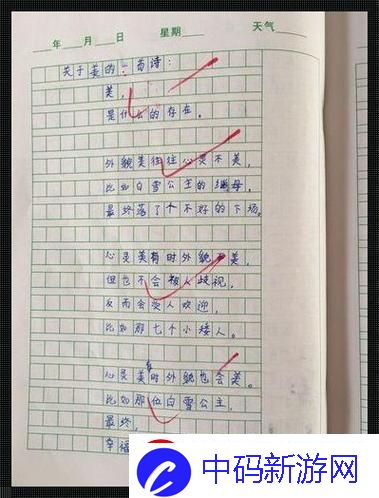 年 月 日 星期 天气
关于美的一首诗：
美，
是什么的存在。
外貌美往往心灵不美，
比如白雪公主的继母，
最终落了个不好的下场。
心灵美有时外貌不美，
但也不会被人歧视，
反而会受人欢迎，
比如那七个小矮人。
心灵美有时外貌也会美。
比如那位白雪公主，
最终，
幸福
中码新游网